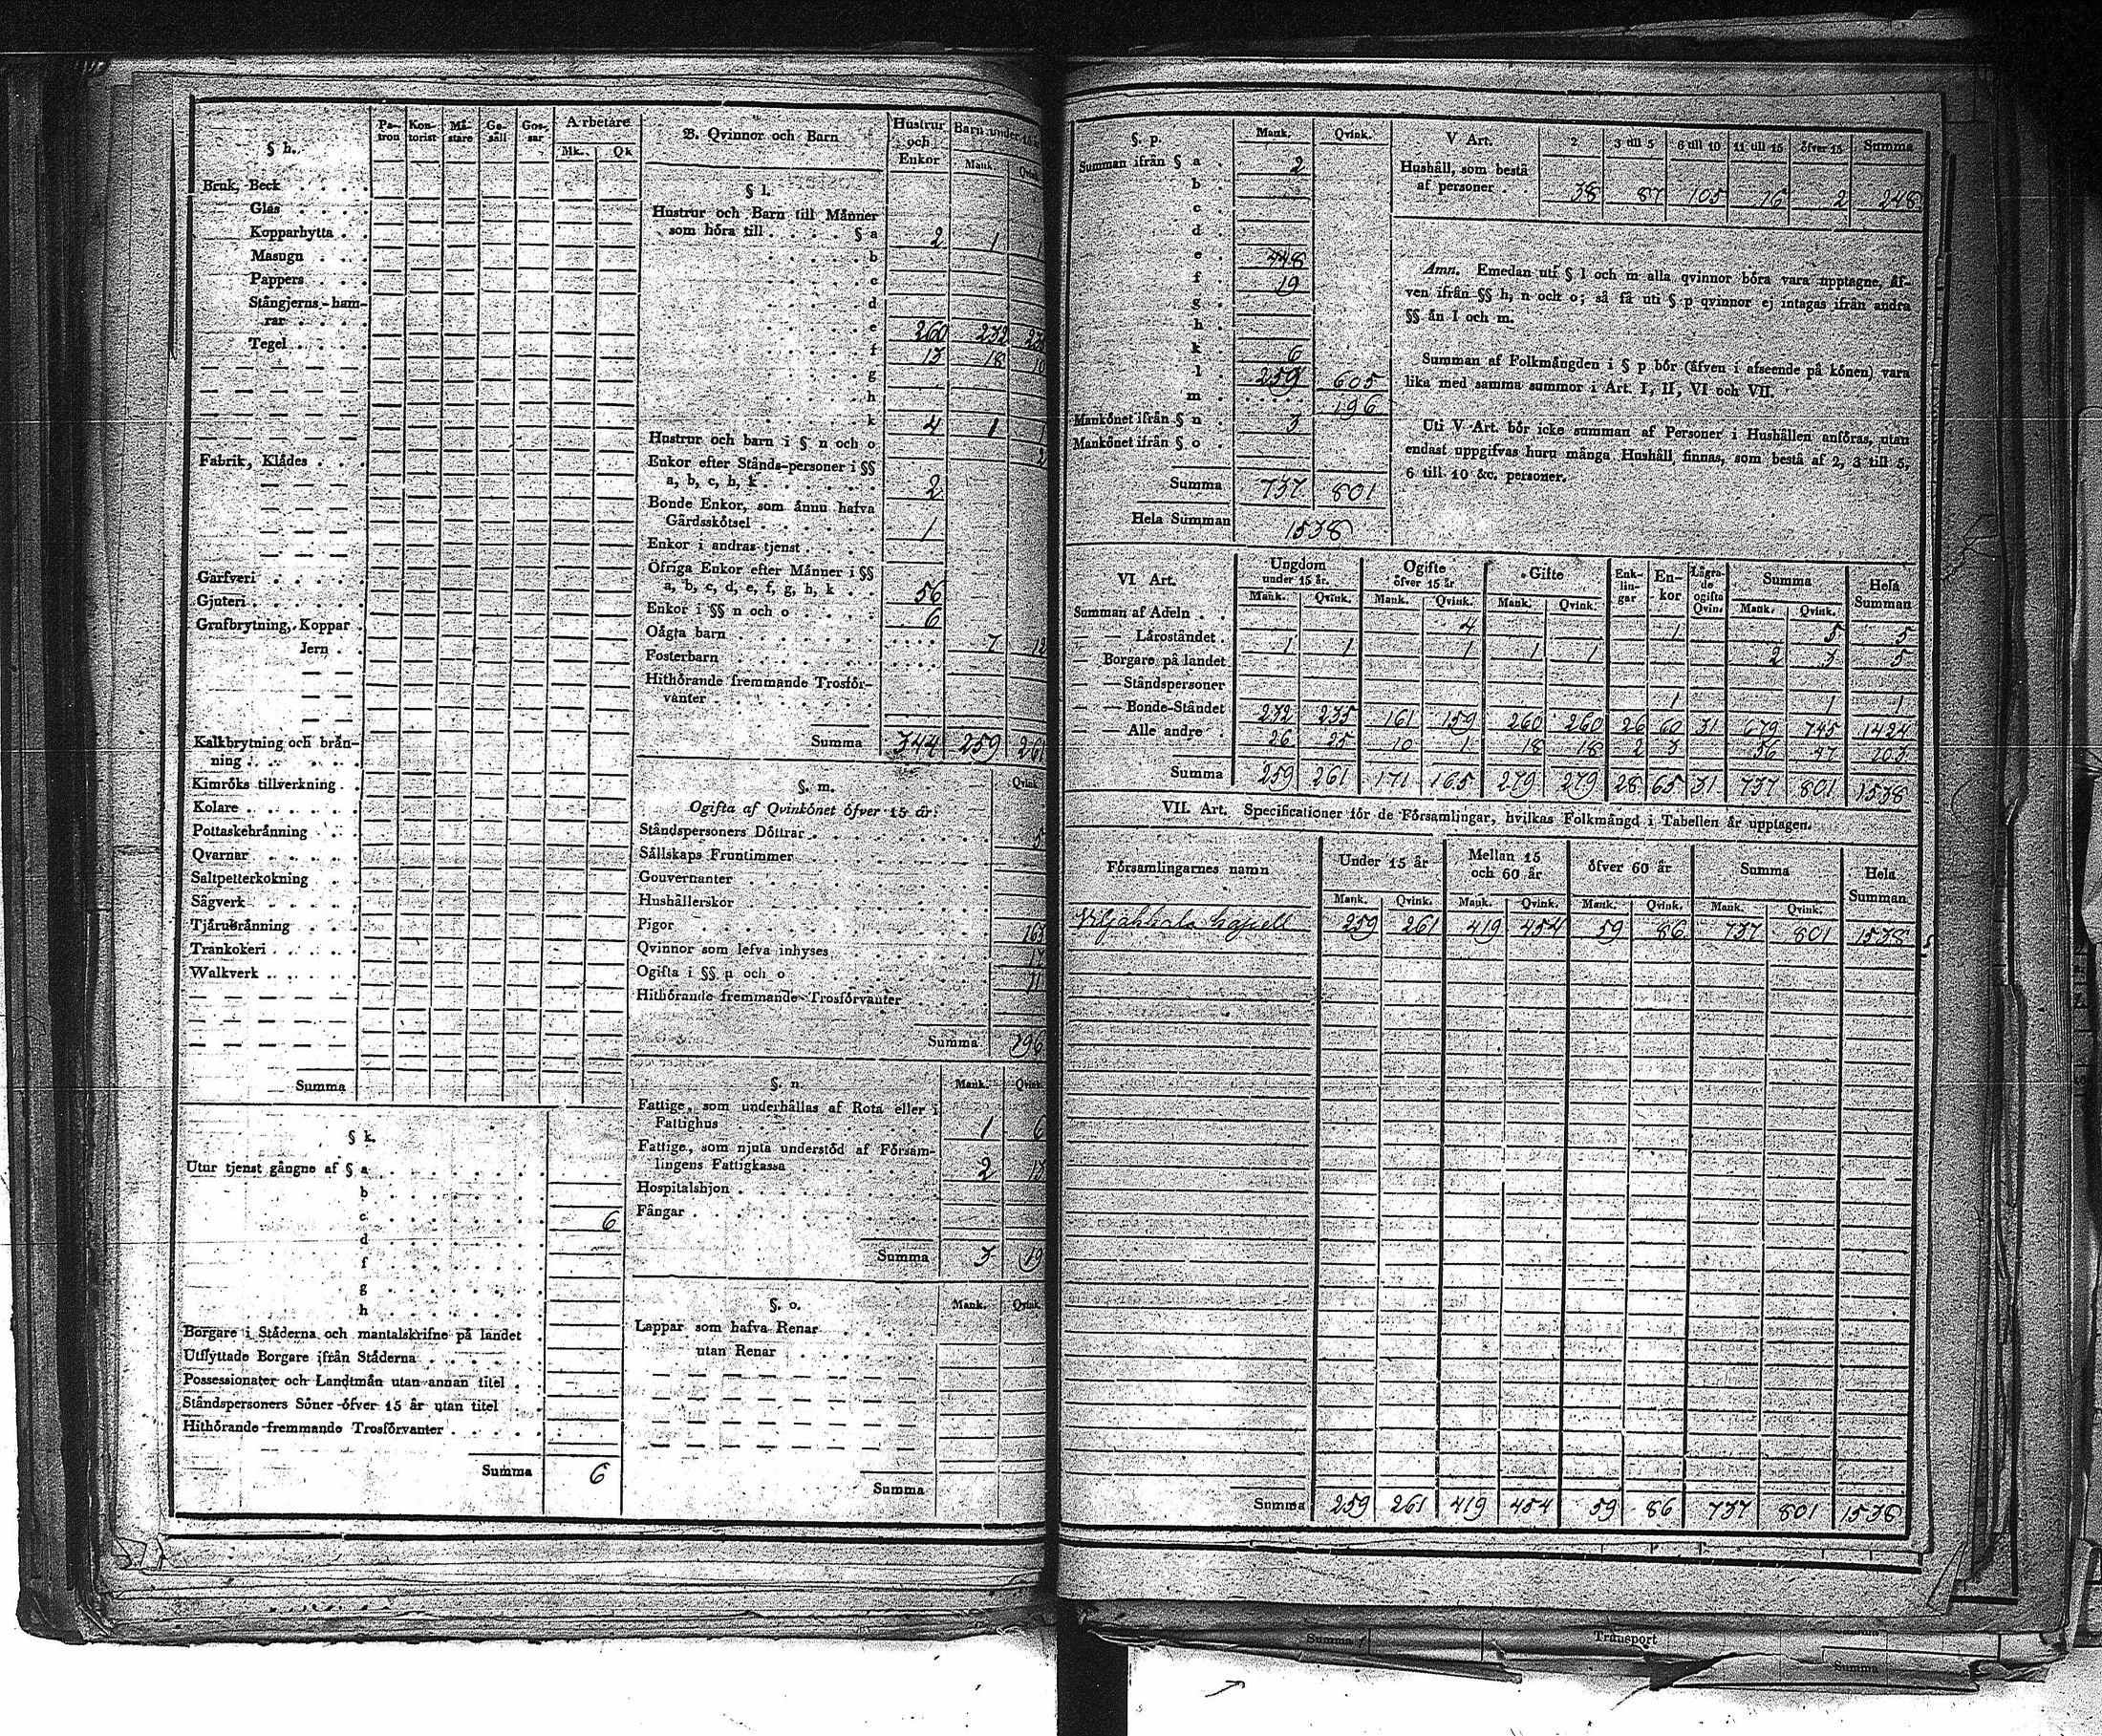 § h. Pa-tron Kon-torist Mä-stare Ge-säll Gos-sar Arbetare Mk. Qk
Bruk, Beck
Glas
Kopparhytta
Masugn
Pappers
Stångjerns-ham-
rar
Tegel
Fabrik, Klädes
Garfveri
Gjuteri
Grufbrytning, Koppar
Jern
Kalkbrytning och brän-
ning
Kimröks tillverkning
Kolare
Pottaskebränning
Qvarnar
Saltpetterkokning
Sågverk
Tjärubränning
Trankokeri
Walkverk
Summa
§ k.
Utur tjenst gångne af § a
b
c 6
d
f
g
h
Borgare i Städerna och mantalskrifne på landet
Utflyttade Borgare ifrån Städerna
Possessionater och Landtmän utan annan titel
Ståndspersoners Söner öfver 15 år utan titel
Hithörande fremmande Trosförvanter
Summa 6
B. Qvinnor och Barn Hustrur och Enkor Barn under 15 Mank.
§ l.
Hustrur och Barn till Männer
som höra till § a 2 1 1
b
c
d
e 260 232
f 13 18 10
g
h
k 4 1
Hustrur och barn i § n och o 2
Enkor efter Stånds-personer i §§
a, b, c, h, k 2
Bonde Enkor, som ännu hafva
Gårdsskötsel 1
Enkor i andras tjenst
Öfriga Enkor efter Männer i §§
a, b, c, d, e, f, g, h, k 56
Enkor i §§ n och o 6
Oägta barn 7 12
Fosterbarn
Hithörande fremmande Trosför-
vanter
Summa 344 259 261
§. m. Qvink
Ogifta af Qvinkönet öfver 15 år:
Ståndspersoners Döttrar 5
Sällskaps Fruntimmer
Gouvernanter
Hushållerskor
Pigor
Qvinnor som lefva inhyses
Ogifta i §§ n och o
Hithörande fremmande Trosförvanter
Summa 196
§. n. Mank. Qvink
Fattige, som underhållas af Rota eller i
Fattighus 1 6
Fattige, som njuta understöd af Försam-
lingens Fattigkassa 2 13
Hospitalshjon
Fångar
Summa 3 19
§. o. Mank. Qvink
Lappar som hafva Renar
utan Renar
Summa
§. p. Mank. Qvink.
Summan ifrån § a 2
b
c
d
e 448
f 19
g
h
k 6
l 259 605
m 196
Mankönet ifrån § n 3
Mankönet ifrån § o
Summa 737 801
Hela Summan 1538
V Art. 2 3 till 5 6 till 10 11 till 15 öfver 15 Summa
Hushåll, som bestå
af personer 38 87 105 16 2 248
Anm. Emedan uti § l och m alla qvinnor böra vara upptagne, äf-
ven ifrån §§ h, n och o; så få uti § p qvinnor ej intagas ifrån andra
§§ än l och m.
Summan af Folkmängden i § p bör (äfven i afseende på könen) vara
lika med samma summor i Art. I, II, VI och VII.
Uti V Art. bör icke summan af Personer i Hushållen anföras, utan
endast uppgifvas huru många Hushåll finnas, som bestå af 2, 3 till 5,
6 till 10 &c. personer.
VI Art. Ungdom under 15 år. Ogifte öfver 15 år Gifte Enk-lin-gar En-kor Lägra-de ogifta Qvin. Summa Hela Summan
Mank. Qvink. Mank. Qvink. Mank. Qvink. Mank. Qvink.
Summan af Adeln 4 1 5 5
— — Läroståndet 1 1 1 1 1 2 3 5
— Borgare på landet
— — Ståndspersoner 1 1 1
— — Bonde-Ståndet 232 235 161 159 260 260 26 60 31 679 745 1424
— — Alle andre 26 25 10 1 18 18 2 3 56 47 103
Summa 259 261 171 165 279 279 28 65 31 737 801 1538
VII. Art. Specificationer för de Församlingar, hvilkas Folkmängd i Tabellen är upptagen.
Församlingarnes namn Under 15 år Mellan 15 och 60 år öfver 60 år Summa Hela Summan
Mank. Qvink. Mank. Qvink. Mank. Qvink. Mank. Qvink.
Kapell 259 261 419 454 59 86 737 801 1538
Summa 259 261 419 454 59 86 737 801 1538
Summa Transport
Summa